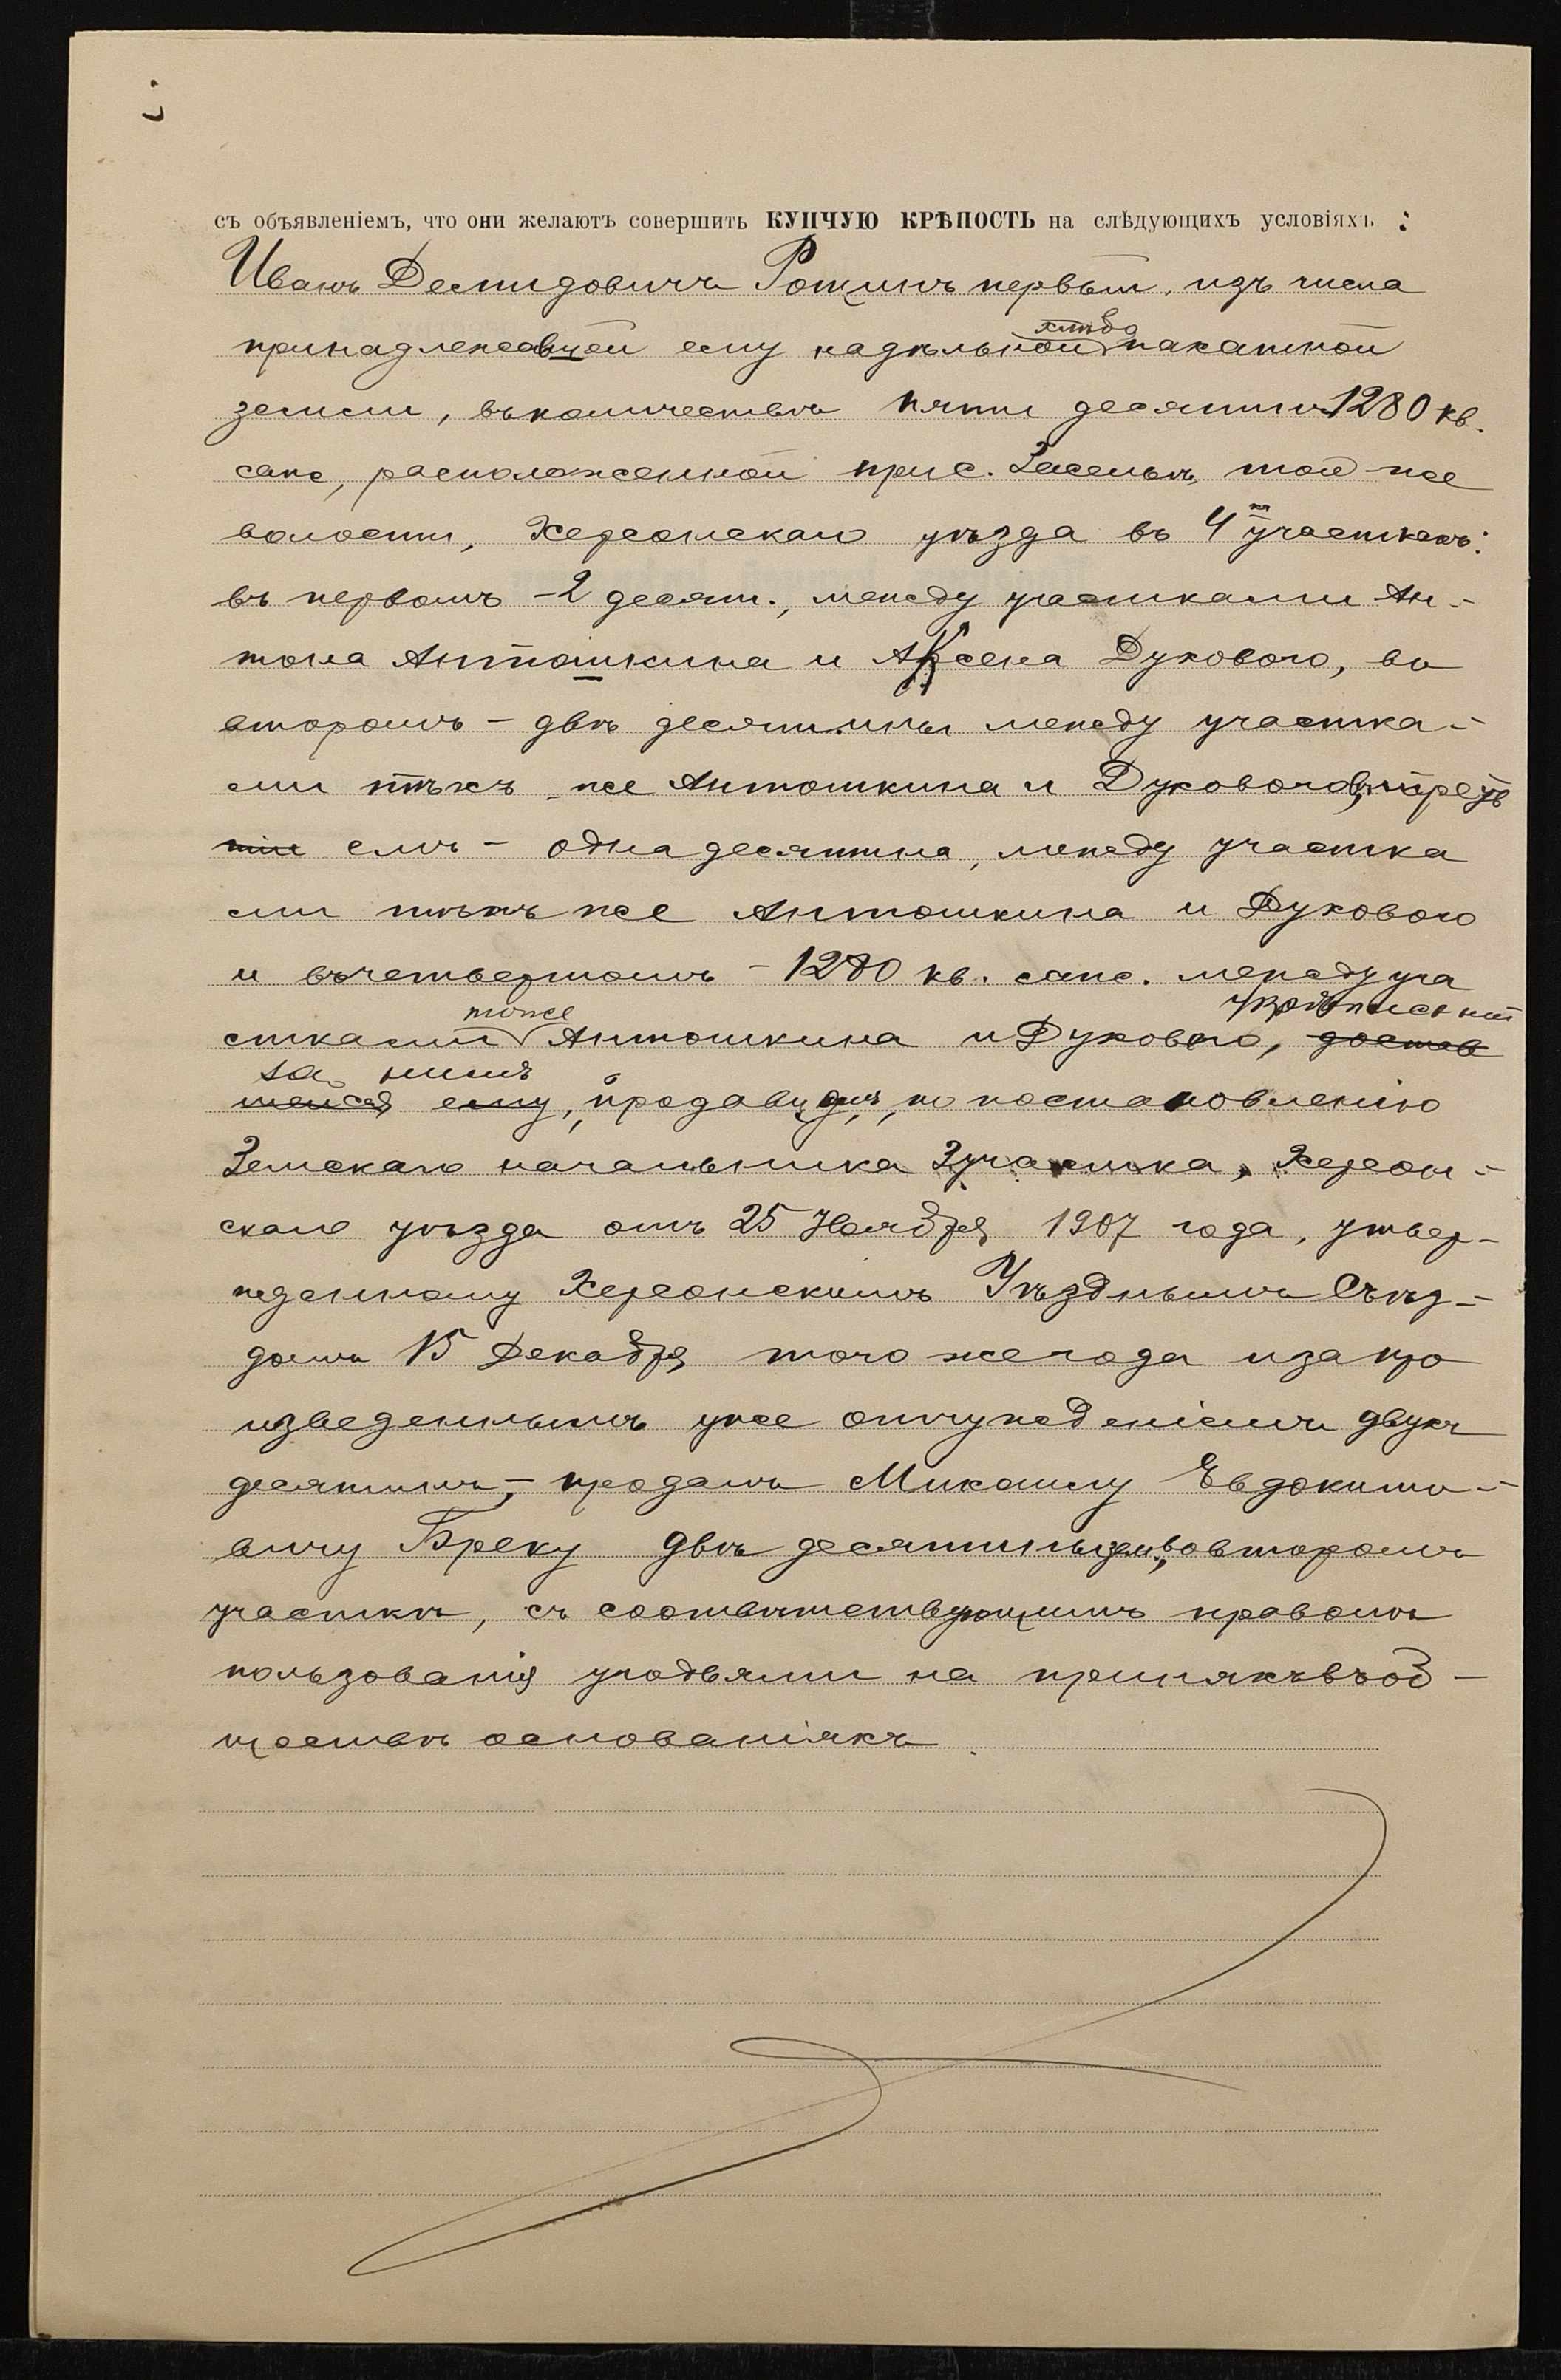 съ объявленіемъ, что они желаютъ совершить КУПЧУЮ КРѢПОСТЬ на слѣдующихъ условіяхъ :
Иванъ Демидовичъ Рощинъ первый, изъ числа
принадлежавшей ему надѣльной хлѣбо пахатной
земли, въ количествѣ пяти десятинъ 1280 кв.
саж, расположенной при с. Засельѣ, той-же
волости, Херсонскаго уѣзда въ 4 участкахъ:
въ первомъ - 2 десят., между участками Ан-
тона Антошкина и Арсена Дукового, во
второмъ - двѣ десятины между участка-
ми тѣхъ же Антошкина и Дукового, въ треть
емъ - одна десятина, между участка
ми тѣхъ же Антошкина и Дукового
и въ четвертомъ - 1280 кв. саж. между уча
тоже укрѣпленной
стками Антошкина и Дукового, достав
за нимъ
шейся ему, продавцомъ, по постановленію
Земскаго начальника 2 участка, Херсон-
скаго уѣзда отъ 25 Ноября 1907 года, утвер-
жденному Херсонскимъ Уѣзднымъ Съѣз-
домъ 15 Декабря того же года и за про
изведеннымъ уже отчужденіемъ двухъ
десятинъ, - продалъ Михаилу Евдокимо-
вичу Бреку двѣ десятины земл., во второмъ
участкѣ, съ соотвѣтствующимъ правомъ
пользованія угодьями на принятыхъ въ об-
ществѣ основаніяхъ.